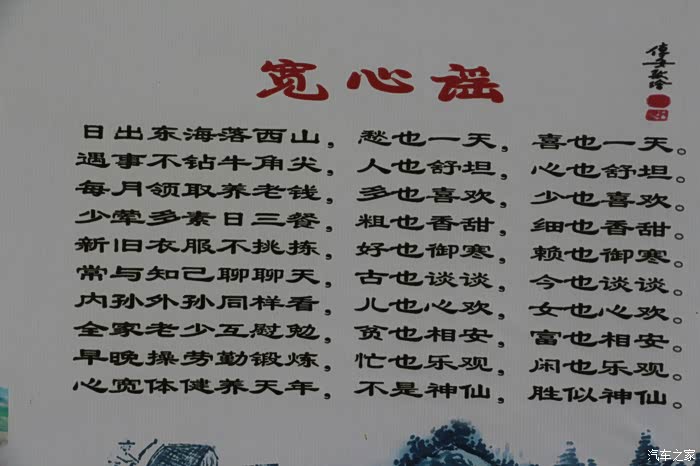 宽心谣
日出东海落西山，愁也一天，喜也一天。
遇事不钻牛角尖，人也舒坦，心也舒坦。
每月领取养老钱，多也喜欢，少也喜欢。
少荤多素日三餐，粗也香甜，细也香甜。
新旧衣服不挑拣，好也御寒，赖也御寒。
常与知己聊聊天，古也谈谈，今也谈谈。
内孙外孙同样看，儿也心欢，女也心欢。
全家老少互慰勉，贫也相安，富也相安。
早晚操劳勤锻炼，忙也乐观，闲也乐观。
心宽体健养天年，不是神仙，胜似神仙。
汽车之家